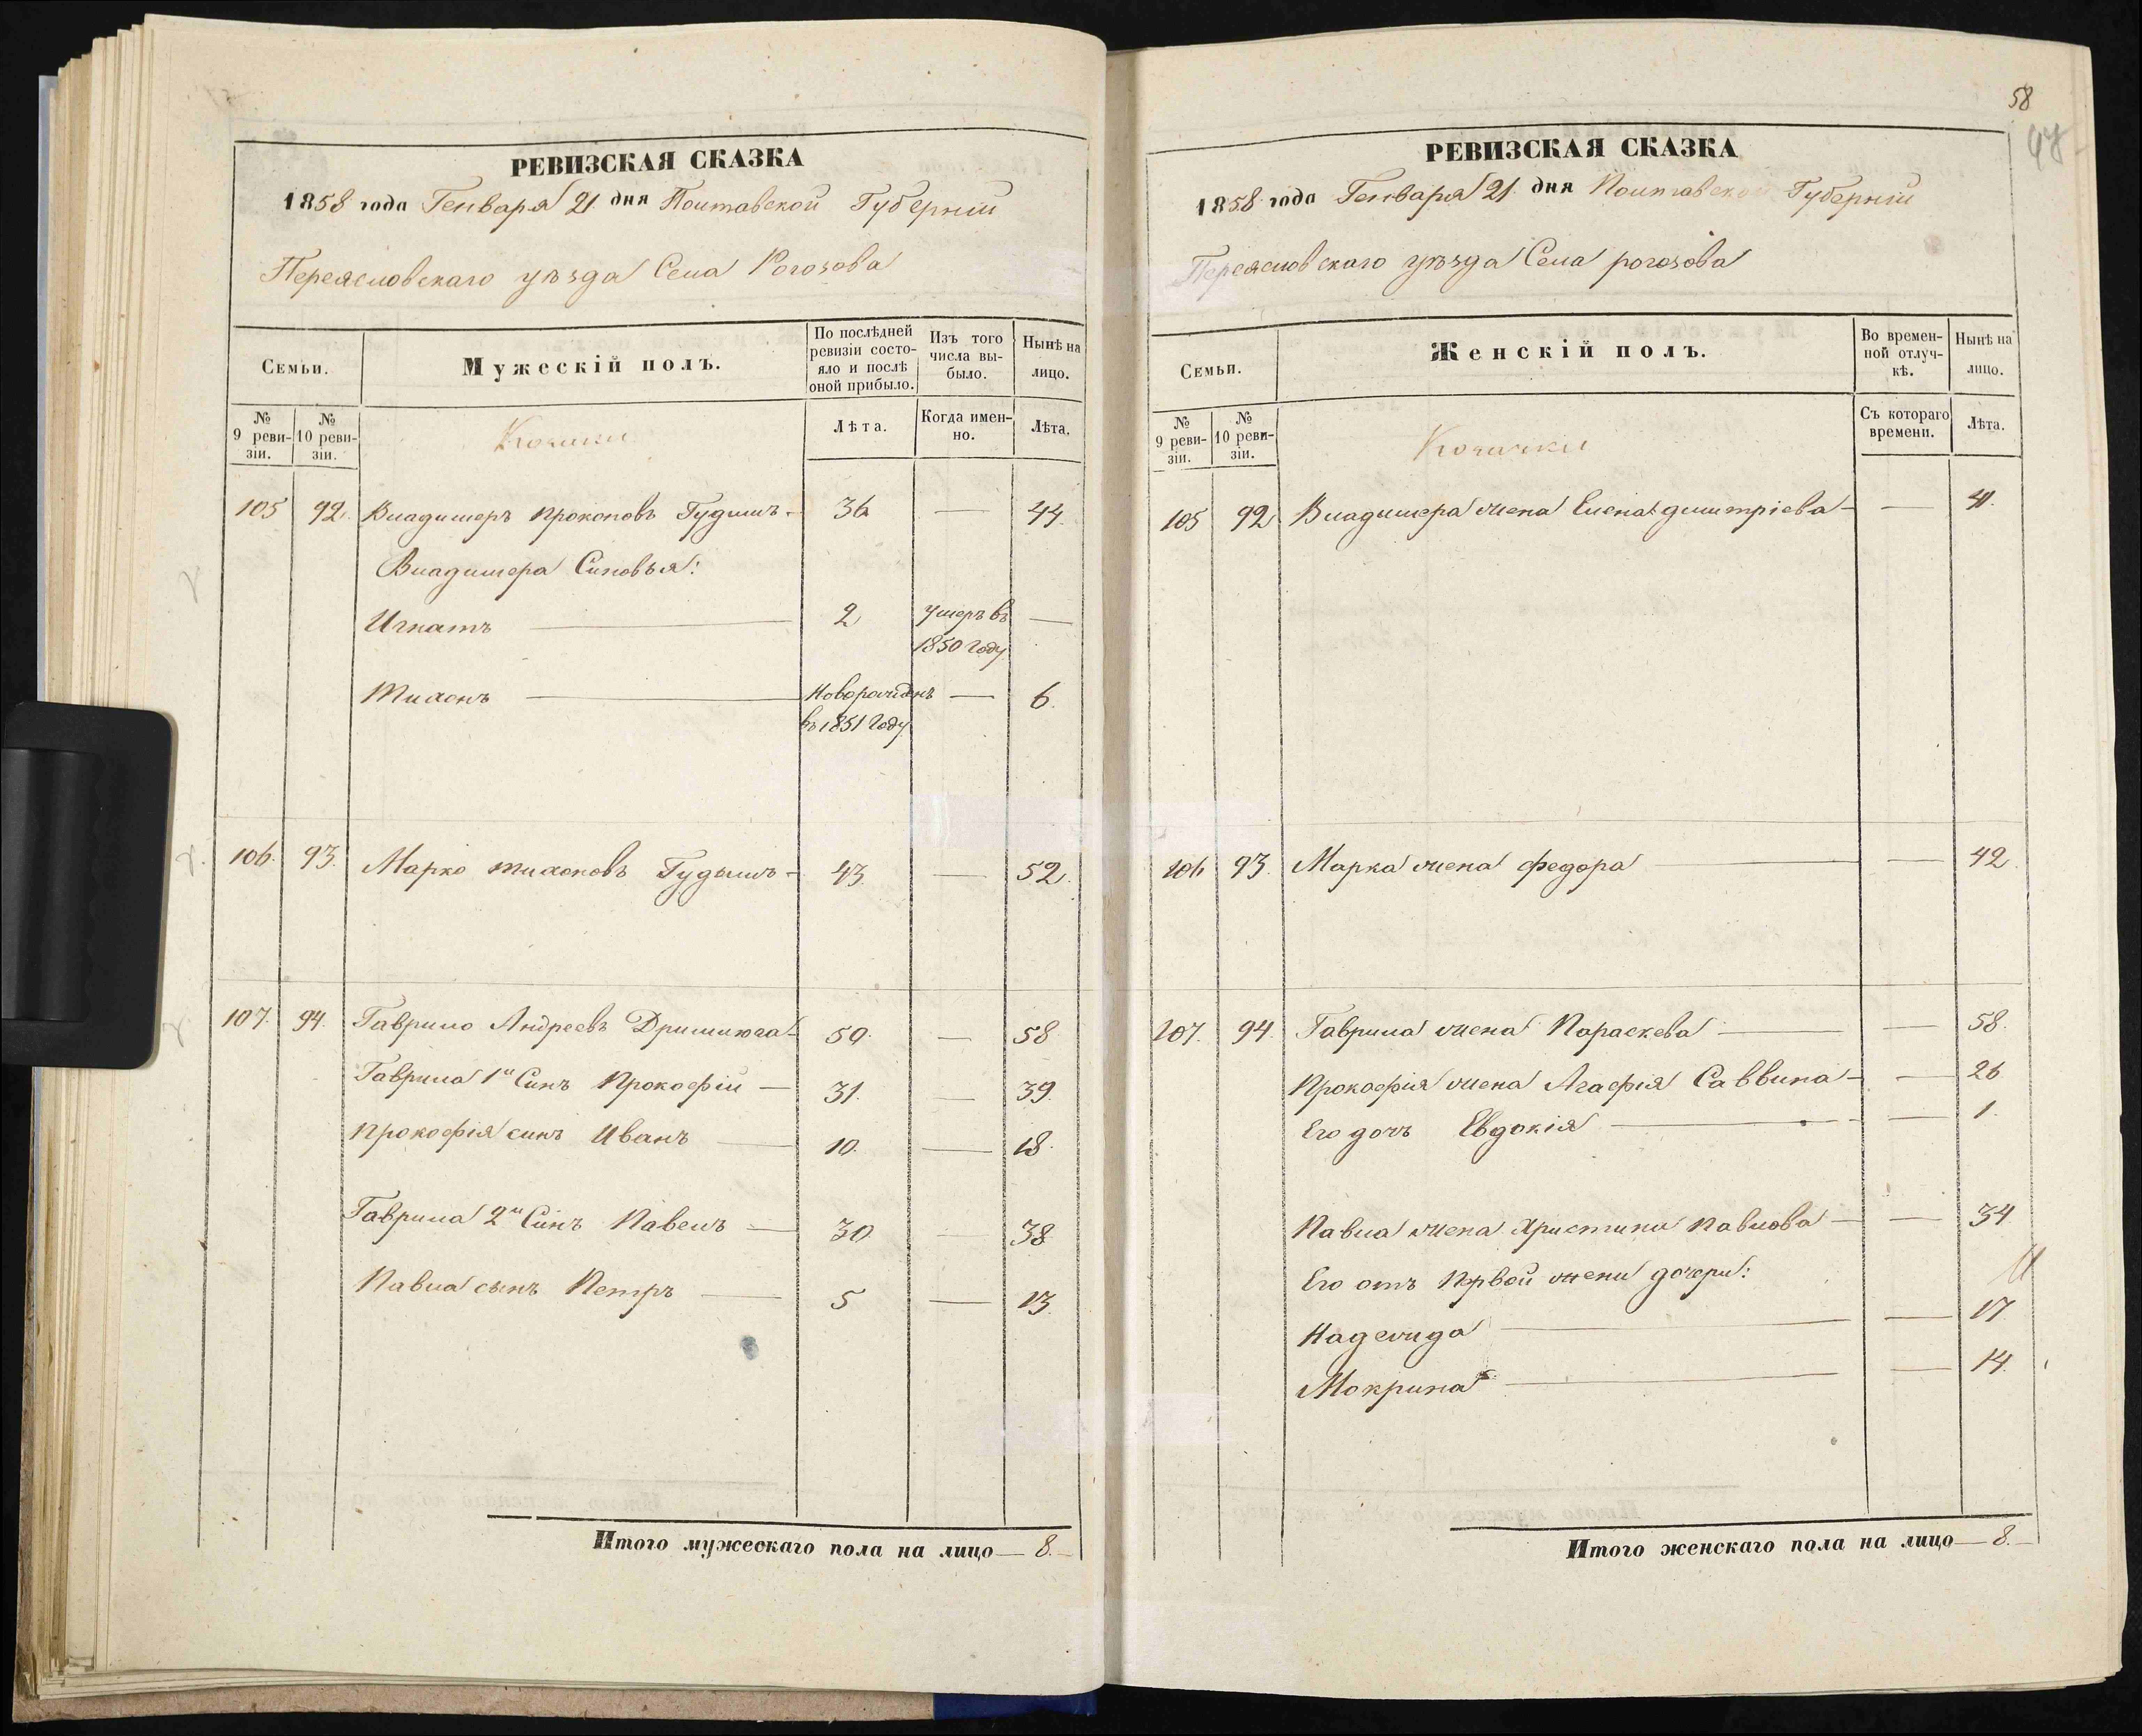 РЕВИЗСКАЯ СКАЗКА
1858 года Генваря 21 дня Полтавской Губерніи
Переясловскаго уѣзда Села Рогозова
Семьи.
Мужескій полъ.
По послѣдней ревизіи состояло и послѣ оной прибыло.
Изъ того числа выбыло.
Нынѣ на лицо.
№ 9 ревизіи.
№ 10 ревизіи.
Козаки
Лѣта.
Когда именно.
Лѣта.
105 92. Владимеръ Прокоповъ Гудимъ 36 — 44.
Владимера Синовья:
Игнатъ — 2 умеръ въ —
1850 году
Тихонъ — Новорожденъ — 6.
въ 1851 году
106. 93. Марко Тихоновъ Гудымъ 43. — 52.
107. 94. Гаврило Андреевъ 50. — 58
Гаврила 1й Синъ Прокофій — 31. — 39.
Прокофія синъ Иванъ — 10. — 18.
Гаврила 2й Синъ Павелъ — 30 — 38
Павла сынъ Петръ — 5 — 13.
Итого мужескаго пола на лицо — 8. —
58
РЕВИЗСКАЯ СКАЗКА
1858 года Генваря 21 дня Полтавской Губерніи
Переясловскаго уѣзда Села рогозова
Семьи.
Женскій полъ.
Во временной отлучкѣ.
Нынѣ на лицо.
№ 9 ревизіи.
№ 10 ревизіи.
Козачки
Съ котораго времени.
Лѣта.
105 92 Владимера жена Елена димитріева — — 41.
106 93. Марка жена федора — — 42.
107. 94 Гаврила жена Параскева — — 58.
Прокофія жена Агафія Саввина — — 26
Его дочь Евдокія — — 1.
Павла жена Христина Павлова — — 34
Его отъ Первой жени дочери:
Надежда — — 17
Мокрина — — 14.
Итого женскаго пола на лицо — 8. —